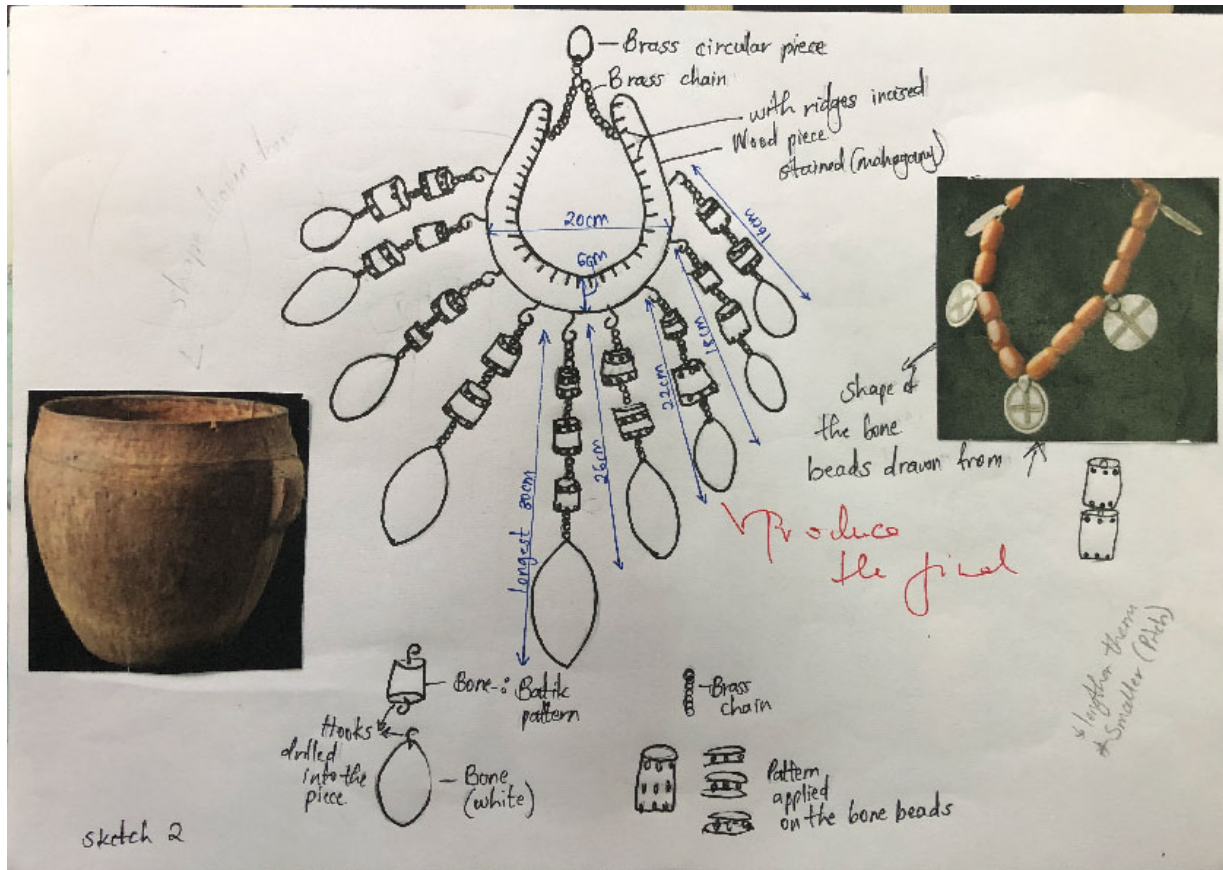 Brass circular piece
Brass chain
with ridges incised
Wood piece
stained (mahogany)
shape drawn from
20cm
6cm
16cm
18cm
22cm
26cm
longest 30cm
shape of
the bone
beads drawn from
Produce
the final
Bone : Batik
pattern
Hooks
drilled
into the
piece
Bone
(white)
Brass
chain
Pattern
applied
on the bone beads
lengthen them
Smaller (Pitch)
sketch 2